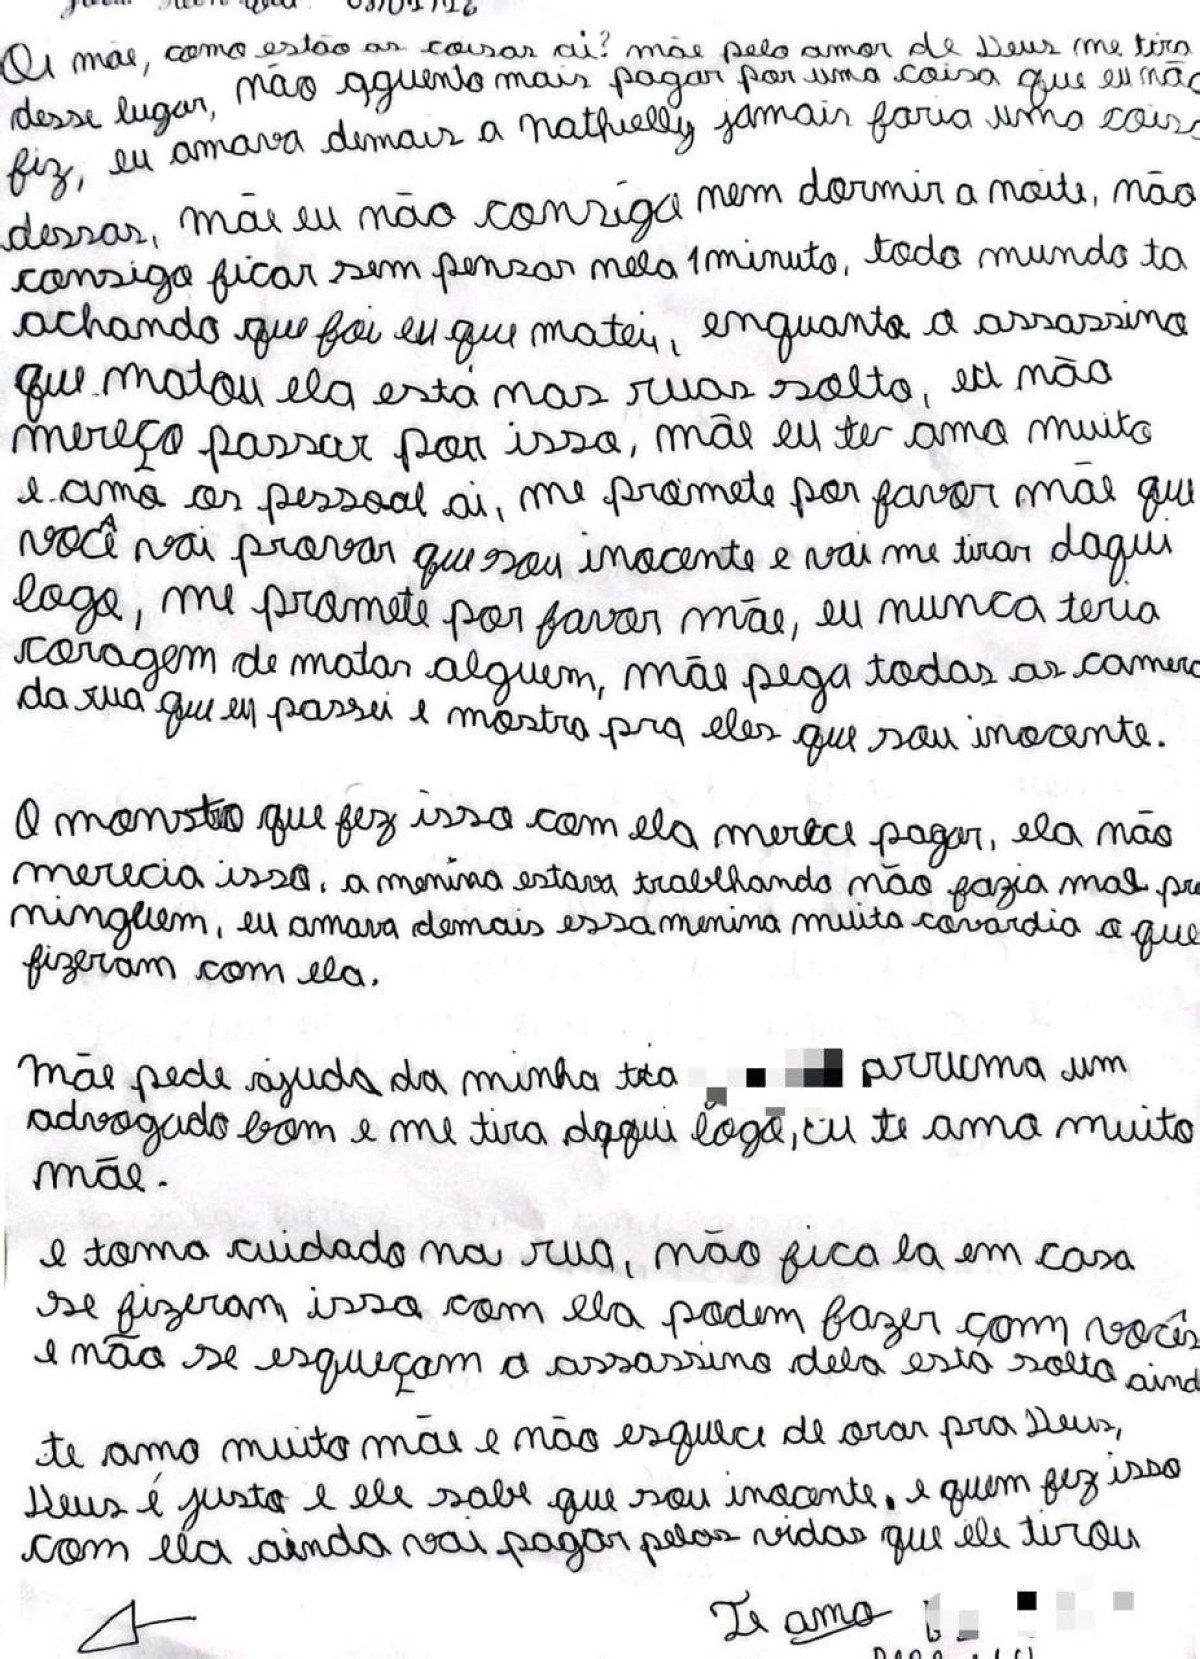 Oi mãe, como estão as coisas ai? mãe pelo amor de Deus me tira
desse lugar, não aguento mais pagar por uma coisa que eu não
fiz, eu amava demais a Nathielly jamais faria uma cois
dessas, mãe eu não consigo nem dormir a noite, não
consigo ficar sem pensar nela 1 minuto, todo mundo ta
achando que foi eu que matei, enquanto o assassino
que matou ela está nas ruas solto, eu não
mereço passar por isso, mãe eu te amo muito
e amo os pessoal ai, me promete por favor mãe que
você vai provar que sou inocente e vai me tirar daqui
logo, me promete por favor mãe, eu nunca teria
coragem de matar alguem, mãe pega todas as camera
da rua que eu passei e mostra pra eles que sou inocente.
O monstro que fez isso com ela merece pagar, ela não
merecia isso, a menina estava trablhando não fazia mal pra
ninguem, eu amava demais essa menina muita covardia o que
fizeram com ela.
Mãe pede ajuda da minha tia arruma um
advogado bom e me tira daqui logo, eu te amo muito
mãe.
e toma cuidado na rua, não fica la em casa
se fizeram isso com ela podem fazer com vocês
e não se esqueçam o assassino dela está solto aind
te amo muito mãe e não esquece de orar pra Deus,
Deus é justo e ele sabe que sou inocente. e quem fez isso
com ela ainda vai pagar pelas vidas que ele tirou
Te amo